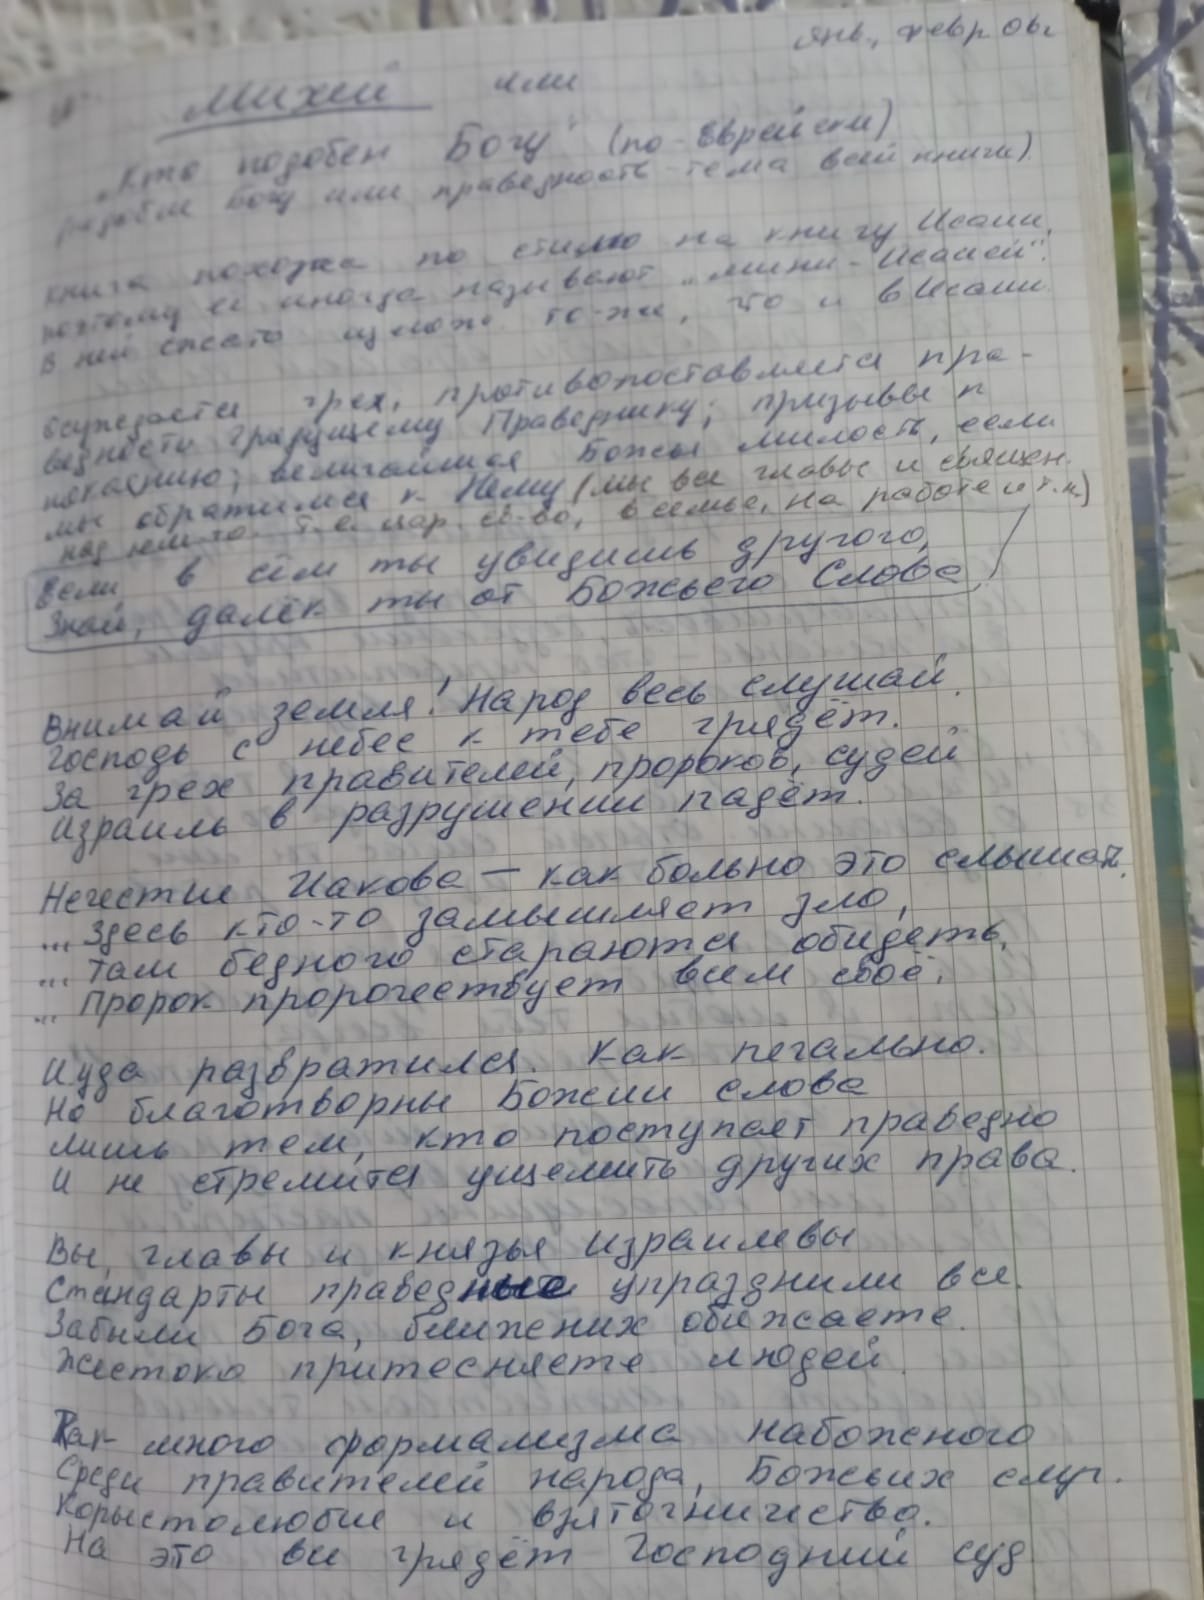 янв., февр. 06г
Михей или
"Кто подобен Богу" (по-еврейски)
Богу или праведность - тема всей книги).
Книга похожа по стилю на книгу Исаии,
поэтому её иногда называют "мини-Исаией".
В ней сжато излож. то-же, что и в Исаии.
Осуждается грех, противопоставляется пра-
ведность грядущему Праведнику; призывы к
покаянию; величайшая Божья милость, если
мы обратимся к Нему (мы все главы и священ.
над кем-то. т.е. цар. св-во, в семье, на работе и т.п.)
Если в сём ты увидишь другого,
Знай, далёк ты от Божьего Слова
Внимай земля! Народ весь слушай.
Господь с небес к тебе грядёт.
За грех правителей, пророков, судей
Израиль в разрушении падёт.
Нечестие Иакова — как больно это слышать.
... Здесь кто-то замышляет зло,
... Там бедного стараются обидеть,
... Пророк пророчествует всем своё.
Иуда развратился. Как печально.
Но благотворны Божии слова
Лишь тем, кто поступает праведно
И не стремится ущемить других права.
Вы, главы и князья Израилевы
Стандарты праведные упразднили все.
Забыли Бога, ближених обижаете.
Жестоко притесняете людей.
Как много формализма набожного
Среди правителей народа, Божьих слуг.
Корыстолюбие и взяточничество.
На это всё грядёт Господний суд